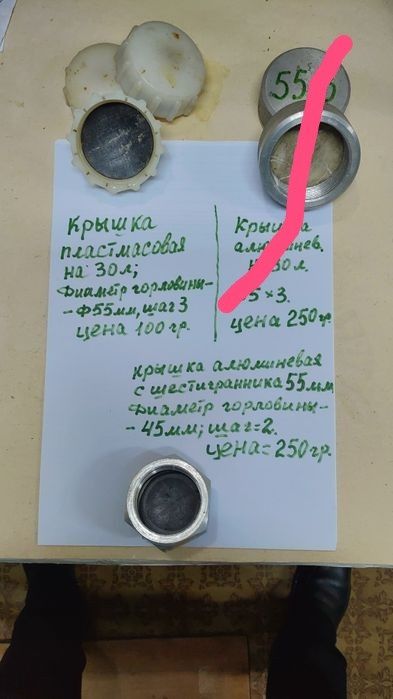 Крышка
пластмасовая
на 30л;
Диаметр горловины-
-Ф55мм, шаг 3
цена 100гр.
55
алюминев.
30л.
5×3.
цена 250гр.
крышка алюминевая
с шестигранника 55мм
Диаметр горловины-
-45мм; шаг=2.
цена=250гр.